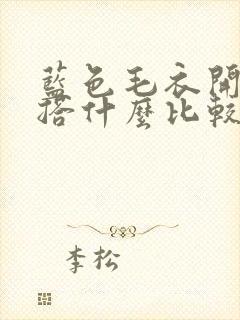 藍色毛衣開
搭什麼比較
李松